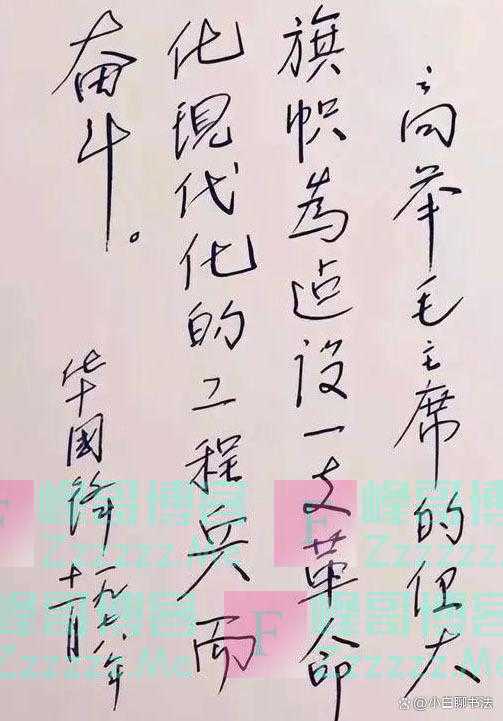 高举毛主席的伟大
旗帜为建设一支革命
化现代化的工程兵而
奋斗。
华国锋 一九七八年
十一月
峰哥博客
Zzzzzz.Me
F
峰哥博客
Zzzzzz.Me
F
峰哥博客
Zzzzzz.Me
@小白聊书法